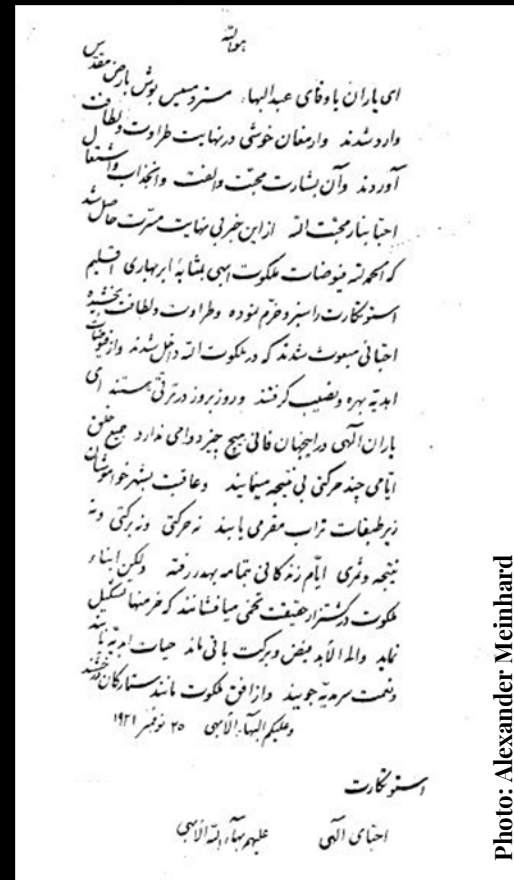 هوالله
ای یاران باوفای عبدالبهاء مستر و مسیس بوش بارض مقدس
وارد شدند وارمغان خوشی در نهایت طراوت و لطافت
آوردند وآن بشارت محبت والفت وانجذاب واشتعال
احبا بنار محبت الله ازاین خبر بی نهایت مسرت حاصل شد
که الحمدلله فیوضات ملکوت ابهی بمثابهٔ ابر بهاری اقلیم
استوتکارت را سبز و خرم نموده وطراوت ولطافت بخشیده
احبائی مبعوث شدند که در ملکوت الله داخل شدند واز فیوضات
ابدیه بهره ونصیب گرفتند وروز بروز در ترقی هستند ای
یاران الهی در اینجهان فانی هیچ چیز دوامی ندارد جمیع خلق
ایامی چند حرکتی بی نتیجه مینمایند وعاقبت بشهر خاموشان
زیر طبقات تراب مقری یابند نه حرکتی ونه برکتی ونه
نتیجه وثمری ایام زندگانی بتمامه بهدر رفته ولکن ابناء
ملکوت در کشتزار حقیقت تخمی میافشانند که خرمنها تشکیل
نماید والی الأبد فیض وبرکت باقی ماند حیات ابدیه یابند
ونعمت سرمدیه جویند واز افق ملکوت مانند ستارگان درخشند
وعلیکم البهآء الأبهی ۲۵ نوفمبر ۱۹۲۱
استوتکارت
احبای الهی علیهم بهآء الله الأبهی
Photo: Alexander Meinhard